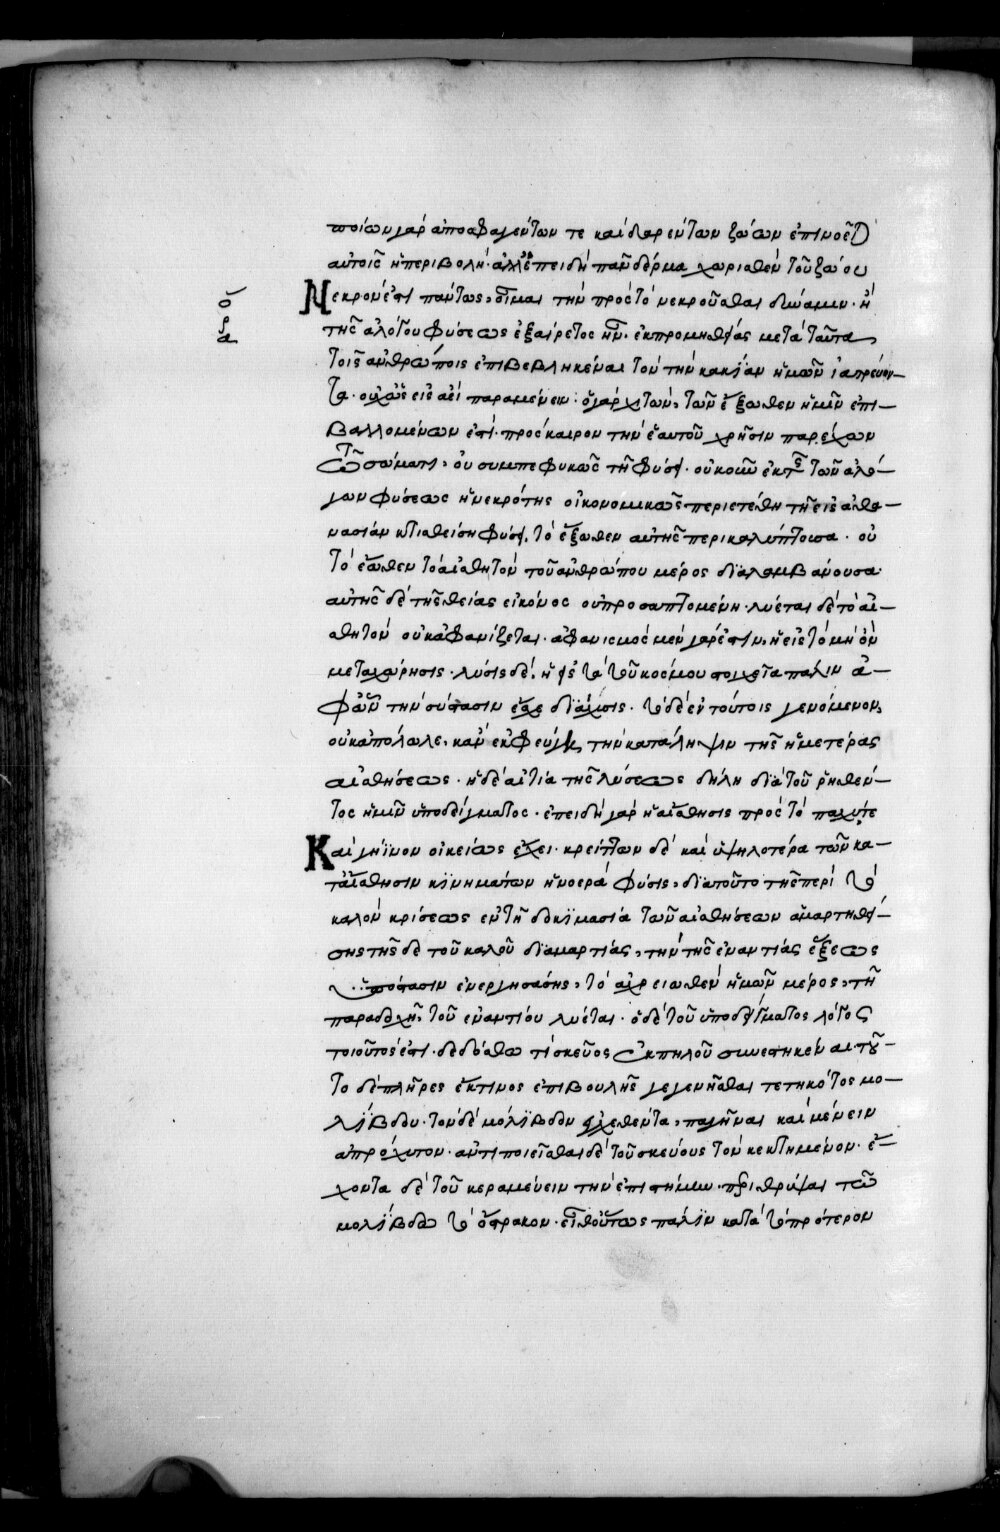 ποίων γὰρ ἀποσφαγέντων τε καὶ δαρέντων ζώων ἐπινοεῖται
αὐτοῖς ἡ περιβολή· ἀλλ' ἐπειδὴ πᾶν δέρμα χωρισθὲν τοῦ ζώου
Νεκρόν ἐστι πάντως, οἶμαι τὴν πρὸς τὸ νεκροῦσθαι δύναμιν· ἣ
τῆς ἀλόγου φύσεως ἐξαίρετος ἦν· ἐκ προμηθείας μετὰ ταῦτα
τοῖς ἀνθρώποις ἐπιβεβληκέναι τὸν τὴν κακίαν ἡμῶν ἰατρεύον-
τα· οὐχ ὡς εἰς ἀεὶ παραμένειν· ὁ γὰρ χιτὼν, τῶν ἔξωθεν ἡμῖν ἐπι-
βαλλομένων ἐστὶ· πρόσκαιρον τὴν ἑαυτοῦ χρῆσιν παρέχων
τῶ σώματι, οὐ συμπεφυκὼς τῆ φύσει· οὐκοῦν ἐκ τῆς τῶν ἀλό-
γων φύσεως ἡ νεκρότης οἰκονομικῶς περιετέθη τῆ εἰς ἀθα-
νασίαν κτισθείση φύσει, τὸ ἔξωθεν αὐτῆς περικαλύπτουσα· οὐ
τὸ ἔσωθεν τὸ αἰσθητὸν τοῦ ἀνθρώπου μέρος διαλαμβάνουσα
αὐτῆς δὲ τῆς θείας εἰκόνος οὐ προσαπτομένη· λύεται δὲ τὸ αἰ-
σθητὸν οὐκ ἀφανίζεται· ἀφανισμὸς μὲν γάρ ἐστιν, ἡ εἰς τὸ μὴ ὂν
μεταχώρησις· λύσις δὲ, ἡ εἰς τὰ τοῦ κόσμου στοιχεῖα πάλιν ἀ-
φ' ὧν τὴν σύστασιν ἔσχε διάχυσις· τὸ δὲ ἐν τούτοις γενόμενον,
οὐκ ἀπόλωλε, κἂν ἐκφεύγη τὴν κατάληψιν τῆς ἡμετέρας
αἰσθήσεως· ἡ δὲ αἰτία τῆς λύσεως δήλη διὰ τοῦ ῥηθέν-
τος ἡμῖν ὑποδείγματος· ἐπειδὴ γὰρ ἡ αἴσθησις πρὸς τὸ παχύ τε
Καὶ γήϊνον οἰκείως ἔχει· κρείττων δὲ καὶ ὑψηλοτέρα τῶν κα-
τ' αἴσθησιν κινημάτων ἡ νοερὰ φύσις, διὰ τοῦτο τῆς περὶ τὸ
καλὸν κρίσεως ἐν τῆ δοκιμασία τῶν αἰσθήσεων ἁμαρτηθεί-
σης τῆς δὲ τοῦ καλοῦ διαμαρτίας, τὴν τῆς ἐναντίας ἕξεως
ὑπόστασιν ἐνεργησάσης, τὸ ἀχρειωθὲν ἡμῶν μέρος, τῆ
παραδοχῆ, τοῦ ἐναντίου λύεται· ὁ δὲ τοῦ ὑποδείγματος λόγος
τοιοῦτός ἐστι· δεδόσθω τί σκεῦος ἐκ πηλοῦ συνεστηκέναι τοῦ-
το δὲ πλῆρες ἔκτινος ἐπιβουλῆς γεγενῆσθαι τετηκότος μο-
λίβδου· τὸν δὲ μόλιβδον ἐγχεθέντα, παγῆναι καὶ μένειν
ἀπρόχυτον· ἀντιποιεῖσθαι δὲ τοῦ σκεύους τὸν κεκτημένον· ἔ-
χοντα δὲ τοῦ κεραμεύειν τὴν ἐπιστήμην· περιθρύψαι τῶ
μολίβδω τὸ ὄστρακον· εἶθ' οὕτως πάλιν κατὰ τὸ πρότερον